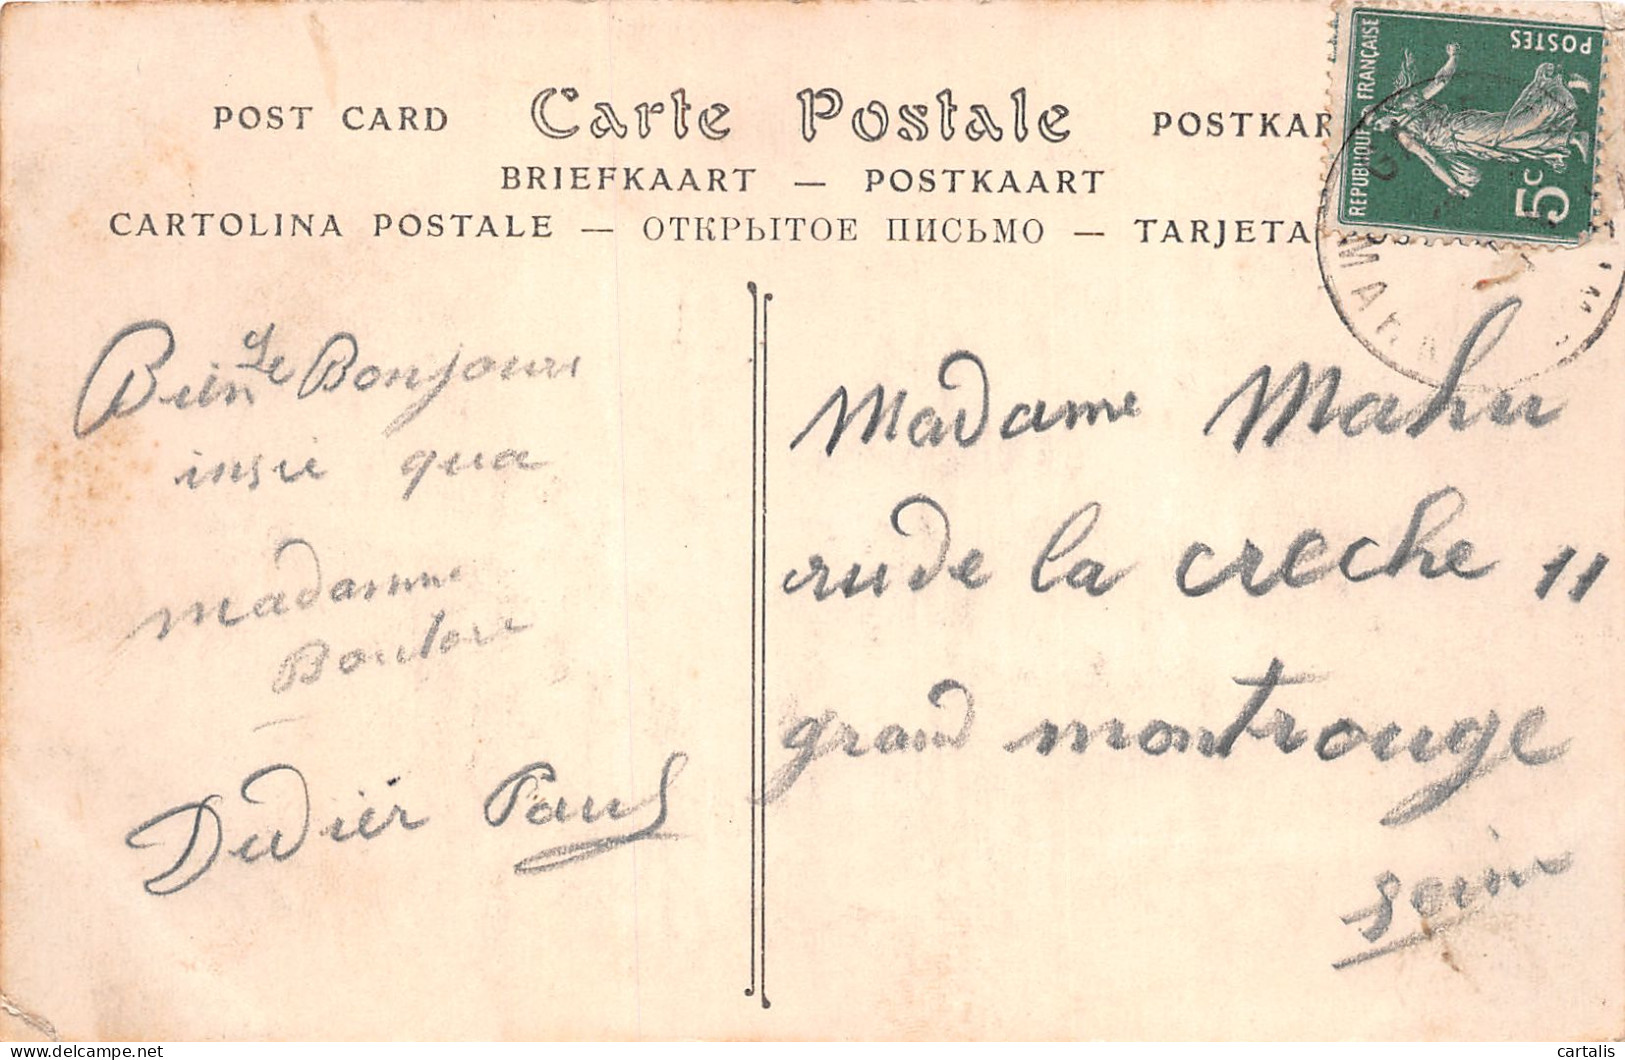 POST CARD Carte Postale POSTKAR
BRIEFKAART — POSTKAART
CARTOLINA POSTALE — ОТКРЫТОЕ ПИСЬМО — TARJETA
REPUBLIQUE FRANÇAISE
POSTES
5c
Bien de Bonjour
insie qua
madamme
Didier Paul
Madame Mahu
rue de la creche 11
grand montrouge
Seine
cartalis
delcampe.net